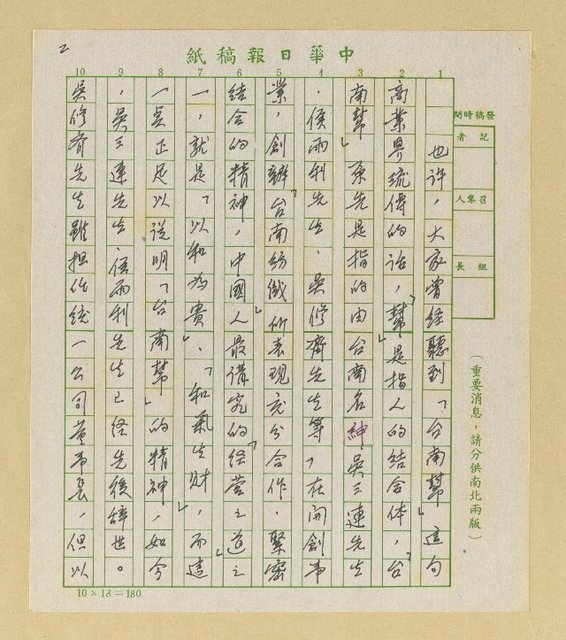 2
中華日報稿紙
1 2 3 4 5 6 7 8 9 10
發稿時間
記者
召集人
組長
（重要消息，請分供南北兩版）
也許，大家曾經聽到「台南幫」這句
商業界流傳的話，「幫」是指人的結合体，「台
南幫」原先是指的由台南名紳吳三連先生
、侯雨利先生、吳修齊先生等，在開創事
業，創辦「台南紡織」所表現充分合作、緊密
結合的精神，中國人最講究的「經營之道」之
一，就是「以和為貴」、「和氣生財」，而這
一點正足以說明「台南幫」的精神，如今
，吳三連先生、侯雨利先生已經先後辭世。
吳修齊先生雖担任統一公司董事長，但以
10×18＝180